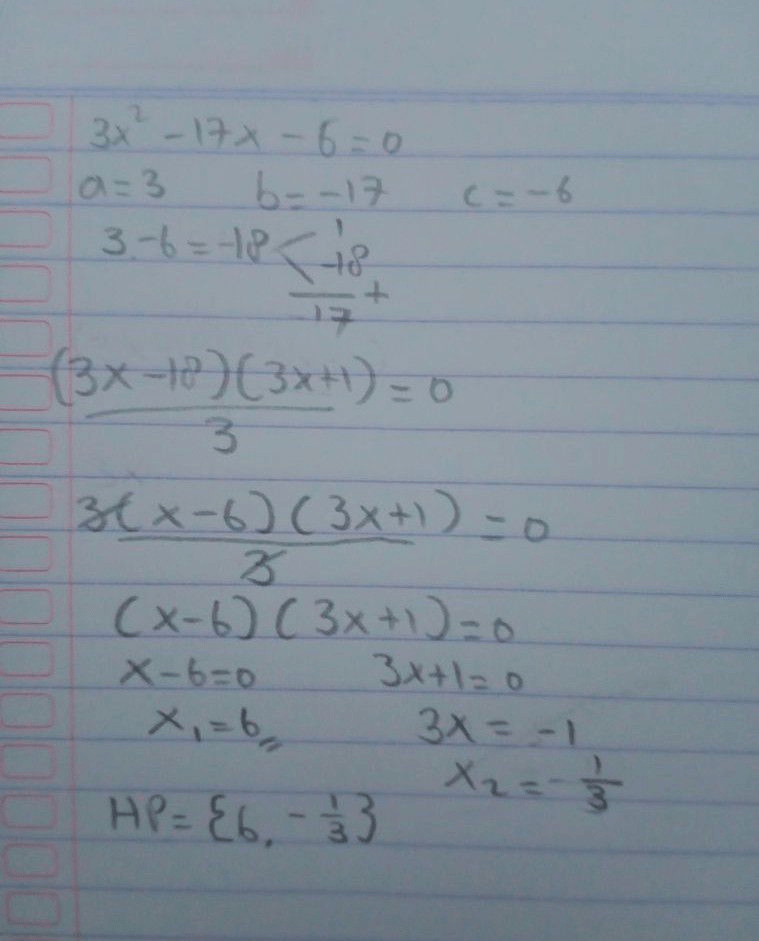 3x² - 17x - 6 = 0
a = 3 b = -17 c = -6
3.-6 = -18 < 1
-18
-17 +
(3x - 18)(3x+1) = 0
3
3(x-6)(3x+1) = 0
3
(x-6)(3x+1) = 0
x-6=0 3x+1= 0
x₁ = 6 3x = -1
x₂ = - 1/3
HP = {6, - 1/3}